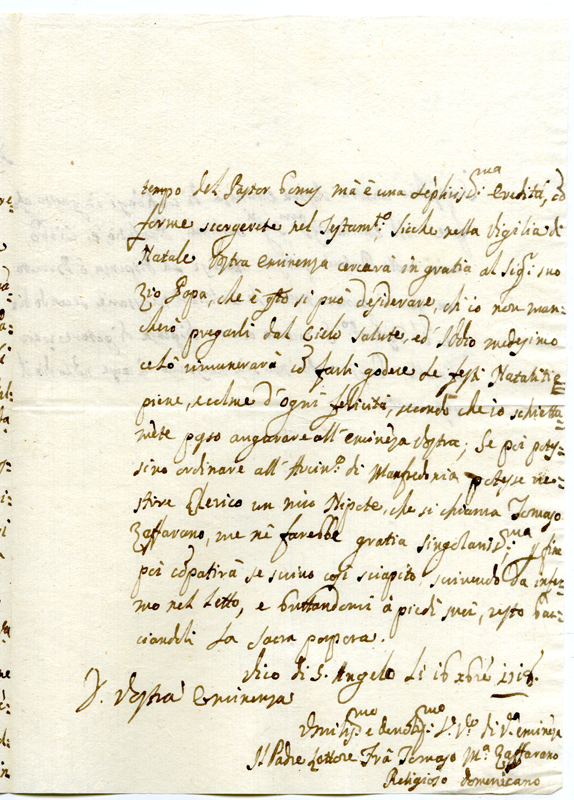 tempo del Pastor bonus mà è una tephiss.ma eredità, cō=
forme scorgerete nel Testam.to, sicche nella Vigilia di
Natale Vostra Eminenza cercarà in gratia al Sig.r suo
Zio Popa, che è q.to si può desiderare, ch'io non man=
cherò pregarli dal Cielo salute, ed' Iddio medesimo
ce lo rimunerarà cō farli godere le feste Natalitie
piene, e colme d'ogni felicità, secondo che io schietta=
mēte posso augurare all'Eminēza Vostra; Se poi potes=
sivo ordinare all'Arciv.o di Manfredonia potesse ve=
stire Clerico un mio Nipote, che si chiama Tomaso
Zaffarano, me nè farebbe gratia singolariss.ma, p fine
poi cōpatirà se scrivo così sciapito, scrivendo da infer=
mo nel letto, e buttandomi à piedi suoi, resto bac=
ciandoli la sacra porpora.
Vico di S. Angelo li 16 xbre 1718.
D. Vostra Eminenza
Umiliss.mo e devotiss.mo S.re V.o di V.a Eminēza
Il Padre Lettore Frà Tomaso M.a Zaffarano
Religioso Domenicano